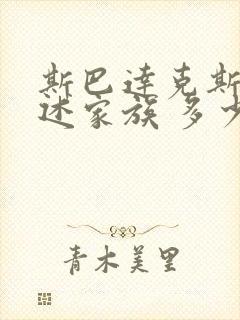 斯巴达克斯
述家族多少
青木美里